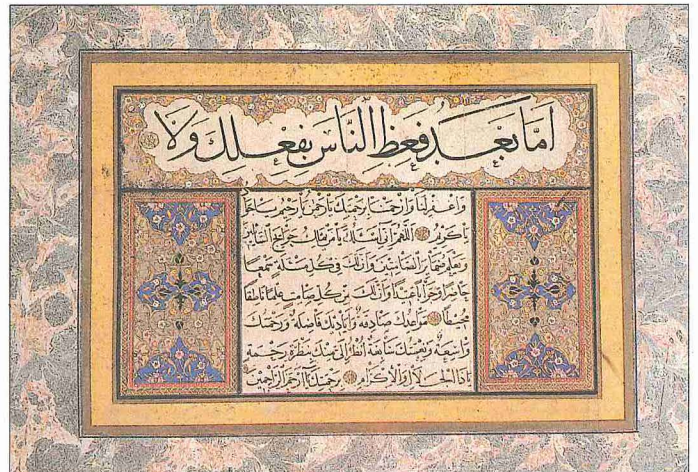 اما بعد فعظ الناس بفعلك ولا
واغفر لنا وارحمنا برحمتك يا رحمن يا رحيم
يا كريم اللهم انى اسئلك يا من يملك حوائج السائلين
ويعلم ضمائر الصامتين وان لك فى كل مسئلة سمعا
حاضرا وجوابا عتيدا وان لك من كل صامت علما ناطقا
محيطا مواعدك صادقة واياديك فاضلة ورحمتك
واسعة ونعمتك سابغة انظر الى منك بنظرة رحيمة
يا ذا الجلال والاكرام برحمتك يا ارحم الراحمين